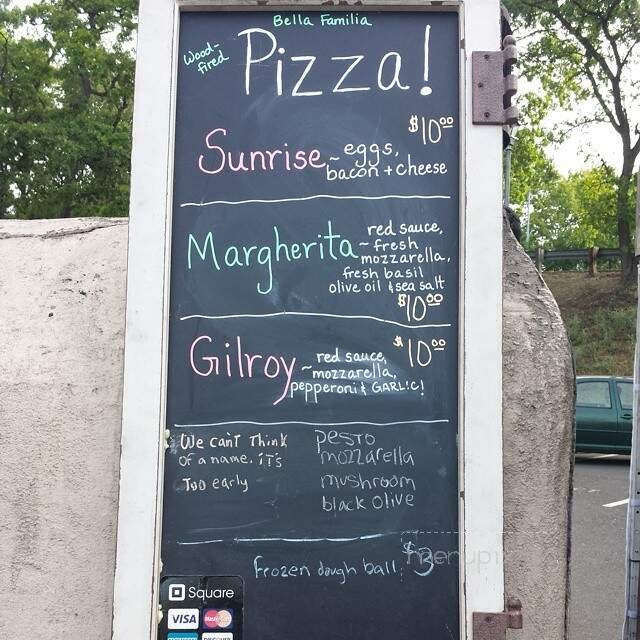 Bella Familia
Wood-
fired
Pizza!
$10⁰⁰
Sunrise ~ eggs,
bacon + cheese
Margherita ~ red sauce,
fresh
mozzarella,
fresh basil
olive oil & sea salt
$10⁰⁰
Gilroy
$10⁰⁰
~ red sauce,
mozzarella,
pepperoni & GARLIC!
We can't Think
of a name. it's
Too early
pesto
mozzarella
mushroom
black olive
Frozen dough ball $3
menupi
Square
VISA
MasterCard
DISCOVER